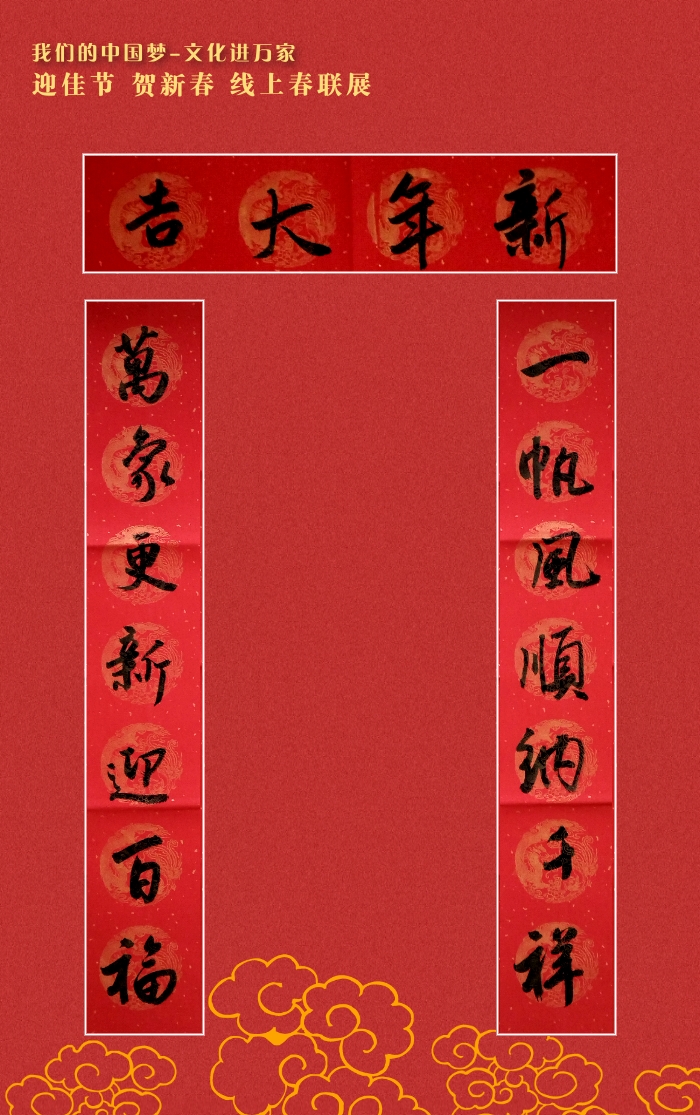 我们的中国梦-文化进万家
迎佳节 贺新春 线上春联展
新年大吉
一帆風順納千祥
萬象更新迎百福